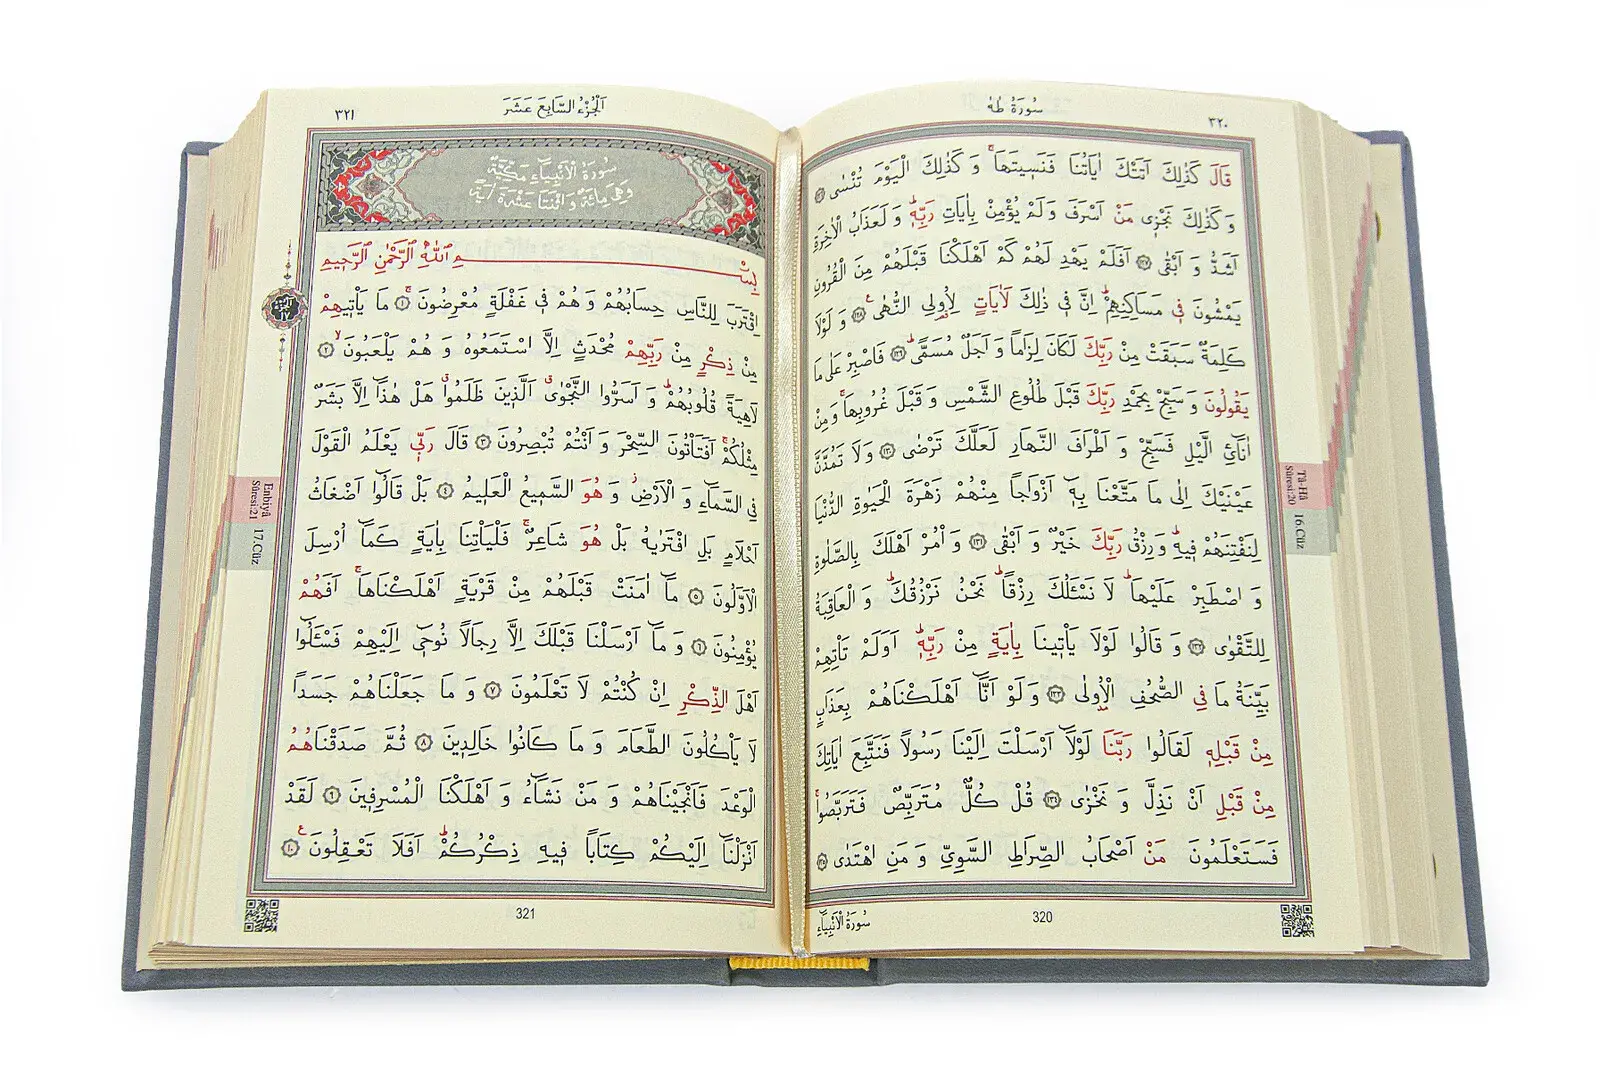 سُورَةُ طٰهٰ
٣٢٠
قَالَ كَذٰلِكَ اَتَتْكَ اٰيَاتُنَا فَنَسٖيتَهَاۚ وَ كَذٰلِكَ الْيَوْمَ تُنْسٰى ﴿١٢٦﴾
وَ كَذٰلِكَ نَجْزٖى مَنْ اَسْرَفَ وَ لَمْ يُؤْمِنْ بِاٰيَاتِ رَبِّهٖۜ وَ لَعَذَابُ الْاٰخِرَةِ
اَشَدُّ وَ اَبْقٰى ﴿١٢٧﴾ اَفَلَمْ يَهْدِ لَهُمْ كَمْ اَهْلَكْنَا قَبْلَهُمْ مِنَ الْقُرُونِ
يَمْشُونَ فٖى مَسَاكِنِهِمْۜ اِنَّ فٖى ذٰلِكَ لَاٰيَاتٍ لِاُولِى النُّهٰىۚ ﴿١٢٨﴾ وَ لَوْلَا
كَلِمَةٌ سَبَقَتْ مِنْ رَبِّكَ لَكَانَ لِزَاماً وَ اَجَلٌ مُسَمًّىۜ ﴿١٢٩﴾ فَاصْبِرْ عَلٰى مَا
يَقُولُونَ وَ سَبِّحْ بِحَمْدِ رَبِّكَ قَبْلَ طُلُوعِ الشَّمْسِ وَ قَبْلَ غُرُوبِهَاۚ وَ مِنْ
اٰنَٓائِ الَّيْلِ فَسَبِّحْ وَ اَطْرَافَ النَّهَارِ لَعَلَّكَ تَرْضٰى ﴿١٣٠﴾ وَ لَا تَمُدَّنَّ
عَيْنَيْكَ اِلٰى مَا مَتَّعْنَا بِهٖٓ اَزْوَاجاً مِنْهُمْ زَهْرَةَ الْحَيٰوةِ الدُّنْيَا
لِنَفْتِنَهُمْ فٖيهِۜ وَ رِزْقُ رَبِّكَ خَيْرٌ وَ اَبْقٰى ﴿١٣١﴾ وَ اْمُرْ اَهْلَكَ بِالصَّلٰوةِ
وَ اصْطَبِرْ عَلَيْهَاۜ لَا نَسْـَٔلُكَ رِزْقاًۜ نَحْنُ نَرْزُقُكَۜ وَ الْعَاقِبَةُ
لِلتَّقْوٰى ﴿١٣٢﴾ وَ قَالُوا لَوْلَا يَاْتٖينَا بِاٰيَةٍ مِنْ رَبِّهٖۜ اَوَلَمْ تَاْتِهِمْ
بَيِّنَةُ مَا فِى الصُّحُفِ الْاُو۫لٰى ﴿١٣٣﴾ وَ لَوْ اَنَّٓا اَهْلَكْنَاهُمْ بِعَذَابٍ
مِنْ قَبْلِهٖ لَقَالُوا رَبَّنَا لَوْلَٓا اَرْسَلْتَ اِلَيْنَا رَسُولاً فَنَتَّبِعَ اٰيَاتِكَ
مِنْ قَبْلِ اَنْ نَذِلَّ وَ نَخْزٰى ﴿١٣٤﴾ قُلْ كُلٌّ مُتَرَبِّصٌ فَتَرَبَّصُواۚ
فَسَتَعْلَمُونَ مَنْ اَصْحَابُ الصِّرَاطِ السَّوِيِّ وَ مَنِ اهْتَدٰى ﴿١٣٥﴾
سُورَةُ الْاَنْبِيَٓاءِ
320
Tâ-Hâ
Sûresi:20
16.Cüz
اَلْجُزْءُ السَّابِعَ عَشَرَ
٣٢١
سُورَةُ الْاَنْبِيَٓاءِ مَكِّيَّةٌ
وَهِىَ مِائَةٌ وَ اثْنَتَا عَشْرَةَ اٰيَةً
بِسْمِ اللّٰهِ الرَّحْمٰنِ الرَّحٖيمِ
اِقْتَرَبَ لِلنَّاسِ حِسَابُهُمْ وَ هُمْ فٖى غَفْلَةٍ مُعْرِضُونَۚ ﴿١﴾ مَا يَاْتٖيهِمْ
مِنْ ذِكْرٍ مِنْ رَبِّهِمْ مُحْدَثٍ اِلَّا اسْتَمَعُوهُ وَ هُمْ يَلْعَبُونَۙ ﴿٢﴾
لَاهِيَةً قُلُوبُهُمْۜ وَ اَسَرُّوا النَّجْوٰىۗ اَلَّذٖينَ ظَلَمُواۗ هَلْ هٰذَٓا اِلَّا بَشَرٌ
مِثْلُكُمْۚ اَفَتَاْتُونَ السِّحْرَ وَ اَنْتُمْ تُبْصِرُونَ ﴿٣﴾ قَالَ رَبّٖى يَعْلَمُ الْقَوْلَ
فِى السَّمَٓاءِ وَ الْاَرْضِۘ وَ هُوَ السَّمٖيعُ الْعَلٖيمُ ﴿٤﴾ بَلْ قَالُٓوا اَضْغَاثُ
اَحْلَامٍ بَلِ افْتَرٰيهُ بَلْ هُوَ شَاعِرٌۚ فَلْيَاْتِنَا بِاٰيَةٍ كَمَٓا اُرْسِلَ
الْاَوَّلُونَ ﴿٥﴾ مَٓا اٰمَنَتْ قَبْلَهُمْ مِنْ قَرْيَةٍ اَهْلَكْنَاهَاۚ اَفَهُمْ
يُؤْمِنُونَ ﴿٦﴾ وَ مَٓا اَرْسَلْنَا قَبْلَكَ اِلَّا رِجَالاً نُوحٖٓى اِلَيْهِمْ فَسْـَٔلُٓوا
اَهْلَ الذِّكْرِ اِنْ كُنْتُمْ لَا تَعْلَمُونَ ﴿٧﴾ وَ مَا جَعَلْنَاهُمْ جَسَداً
لَا يَاْكُلُونَ الطَّعَامَ وَ مَا كَانُوا خَالِدٖينَ ﴿٨﴾ ثُمَّ صَدَقْنَاهُمُ
الْوَعْدَ فَاَنْجَيْنَاهُمْ وَ مَنْ نَشَٓاءُ وَ اَهْلَكْنَا الْمُسْرِفٖينَ ﴿٩﴾ لَقَدْ
اَنْزَلْنَٓا اِلَيْكُمْ كِتَاباً فٖيهِ ذِكْرُكُمْۜ اَفَلَا تَعْقِلُونَۚ ﴿١٠﴾
Enbiyâ
Sûresi:21
17.Cüz
321